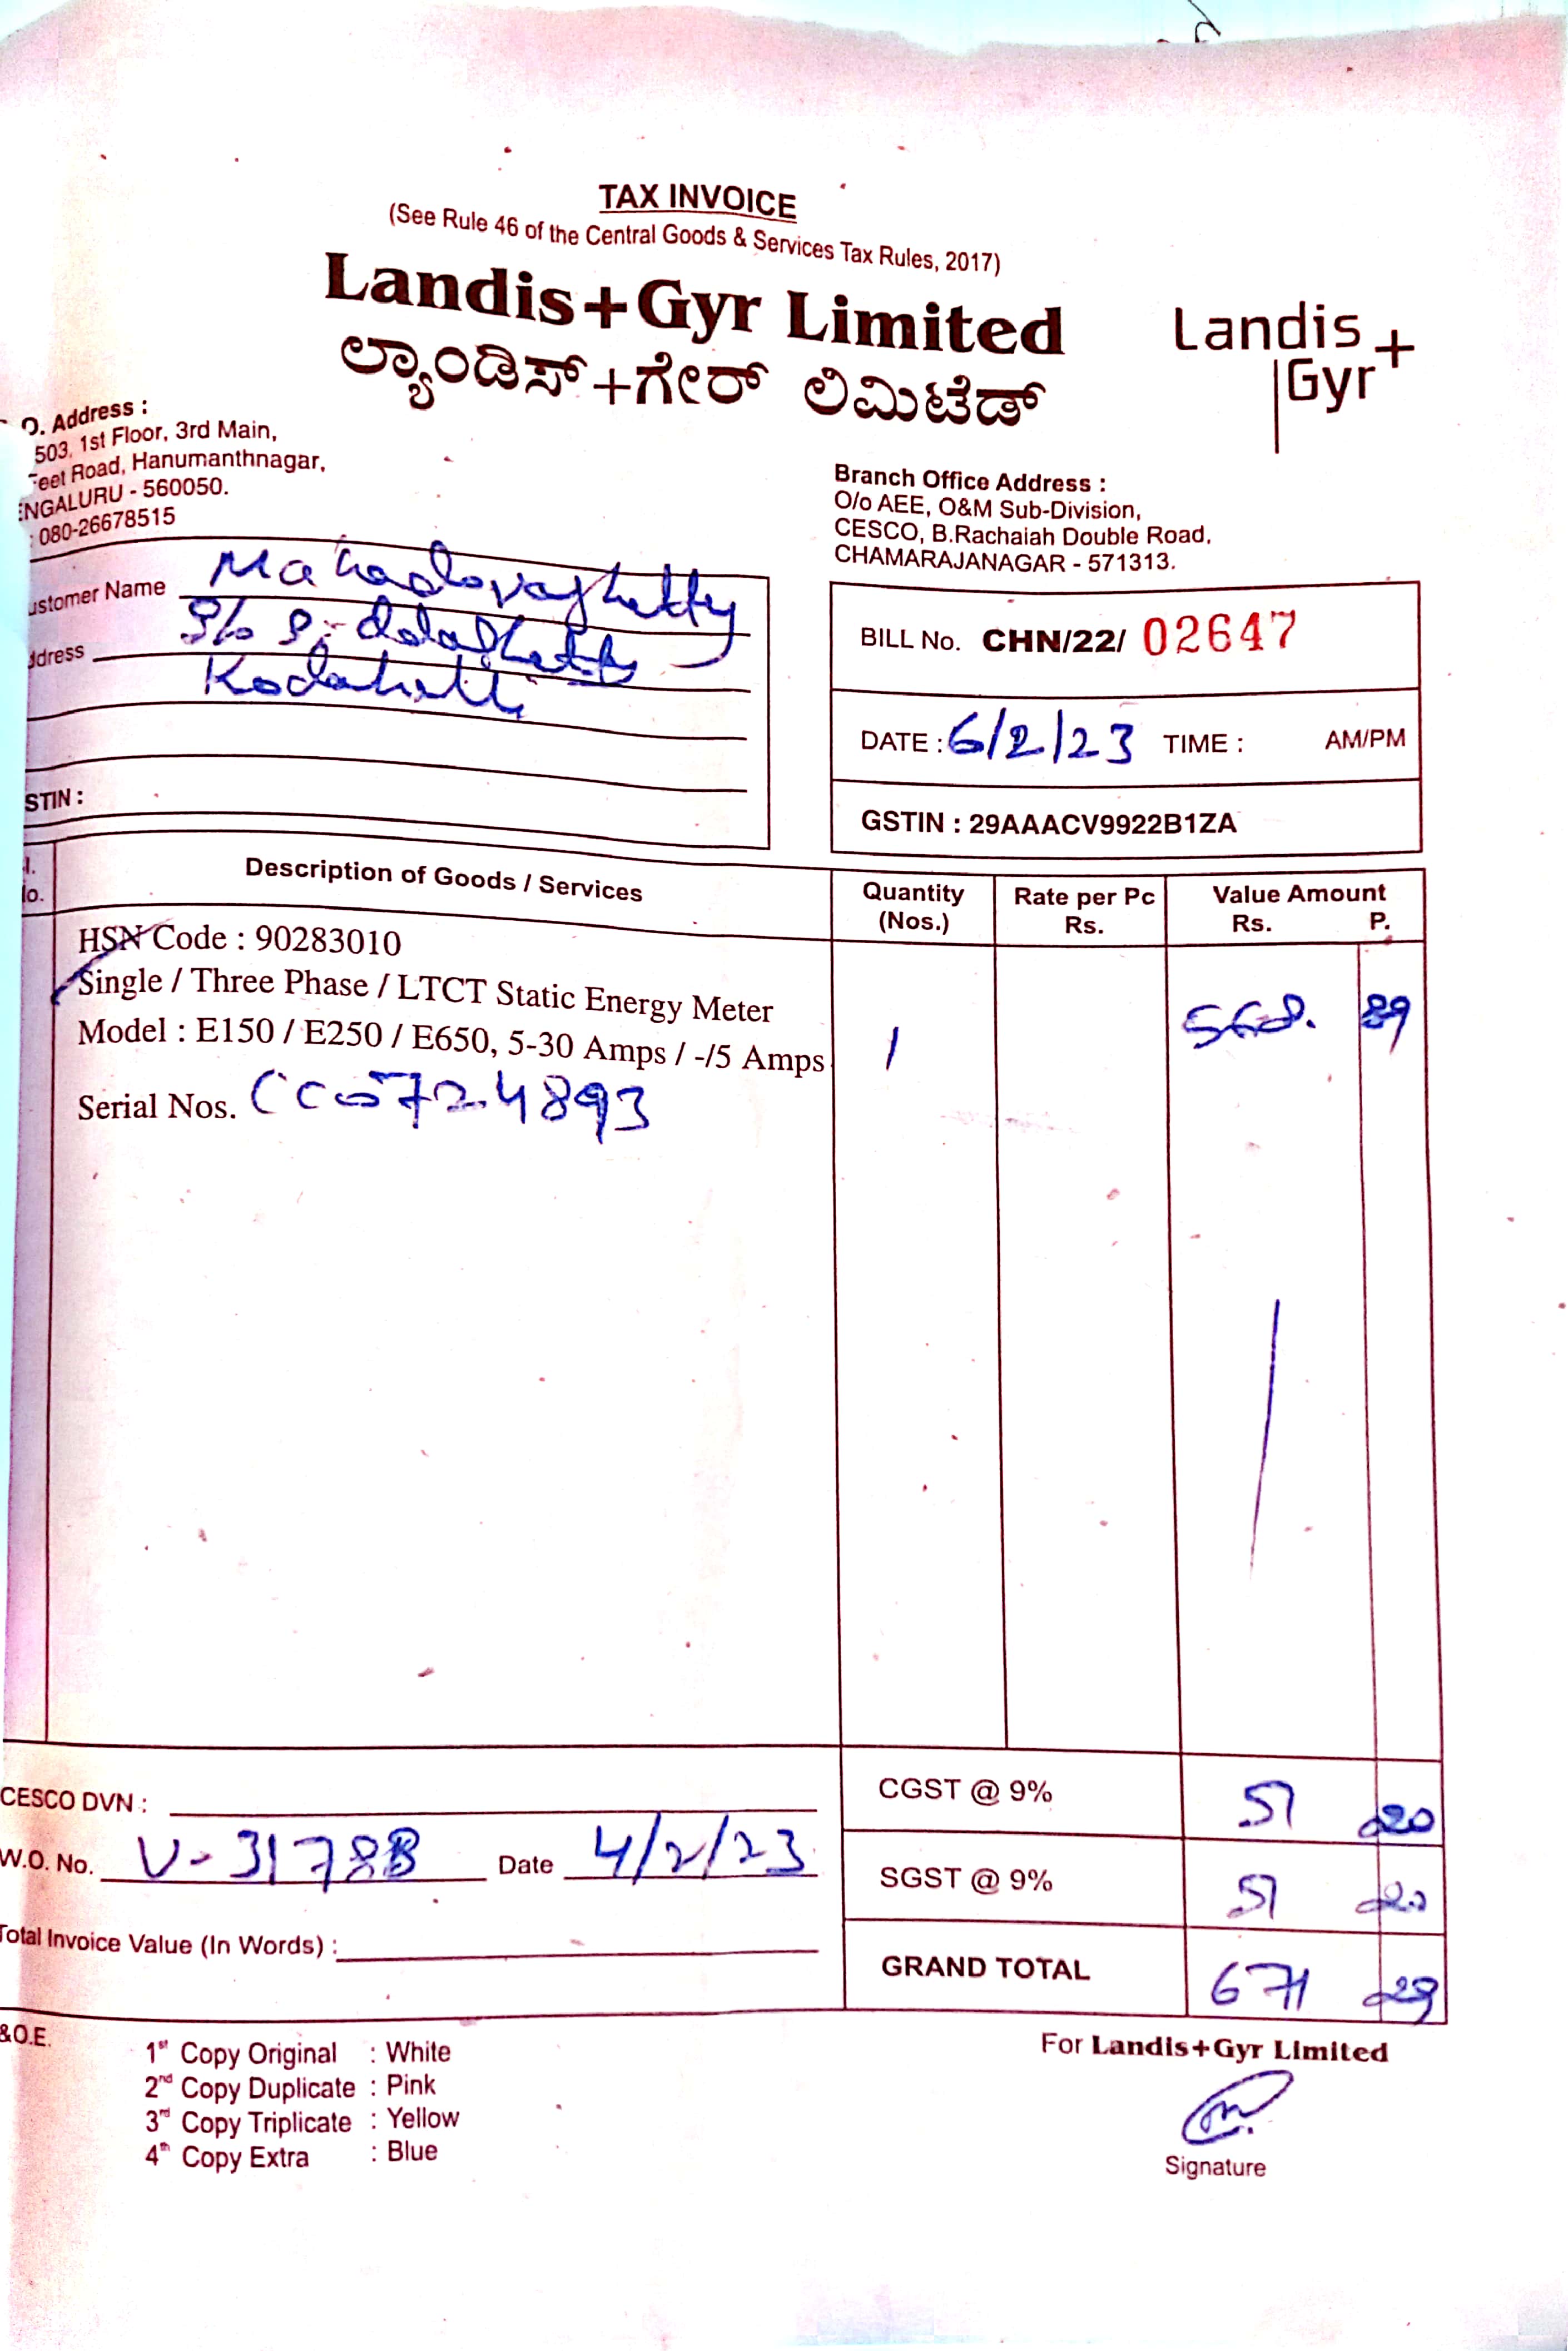 TAX INVOICE
(See Rule 46 of the Central Goods & Services Tax Rules, 2017)
Landis+Gyr Limited
ಲ್ಯಾಂಡಿಸ್+ಗೇರ್ ಲಿಮಿಟೆಡ್
Landis+
Gyr
O. Address :
503, 1st Floor, 3rd Main,
Feet Road, Hanumanthnagar,
ENGALURU - 560050.
: 080-26678515
Branch Office Address :
O/o AEE, O&M Sub-Division,
CESCO, B.Rachaiah Double Road,
CHAMARAJANAGAR - 571313.
ustomer Name Mahadevashetty
ddress S/o Siddashetty
Kodahalli
STIN :
BILL No. CHN/22/ 02647
DATE : 6/2/23 TIME : AM/PM
GSTIN : 29AAACV9922B1ZA
l. lo. Description of Goods / Services Quantity (Nos.) Rate per Pc Rs. Value Amount Rs. P.
HSN Code : 90283010
Single / Three Phase / LTCT Static Energy Meter
Model : E150 / E250 / E650, 5-30 Amps / -/5 Amps 1 568. 89
Serial Nos. CC05724893
CESCO DVN :
W.O. No. V-31788 Date 4/2/23
Total Invoice Value (In Words) :
CGST @ 9% 51 20
SGST @ 9% 51 20
GRAND TOTAL 671 29
&O.E.
1st Copy Original : White
2nd Copy Duplicate : Pink
3rd Copy Triplicate : Yellow
4th Copy Extra : Blue
For Landis+Gyr Limited
Signature